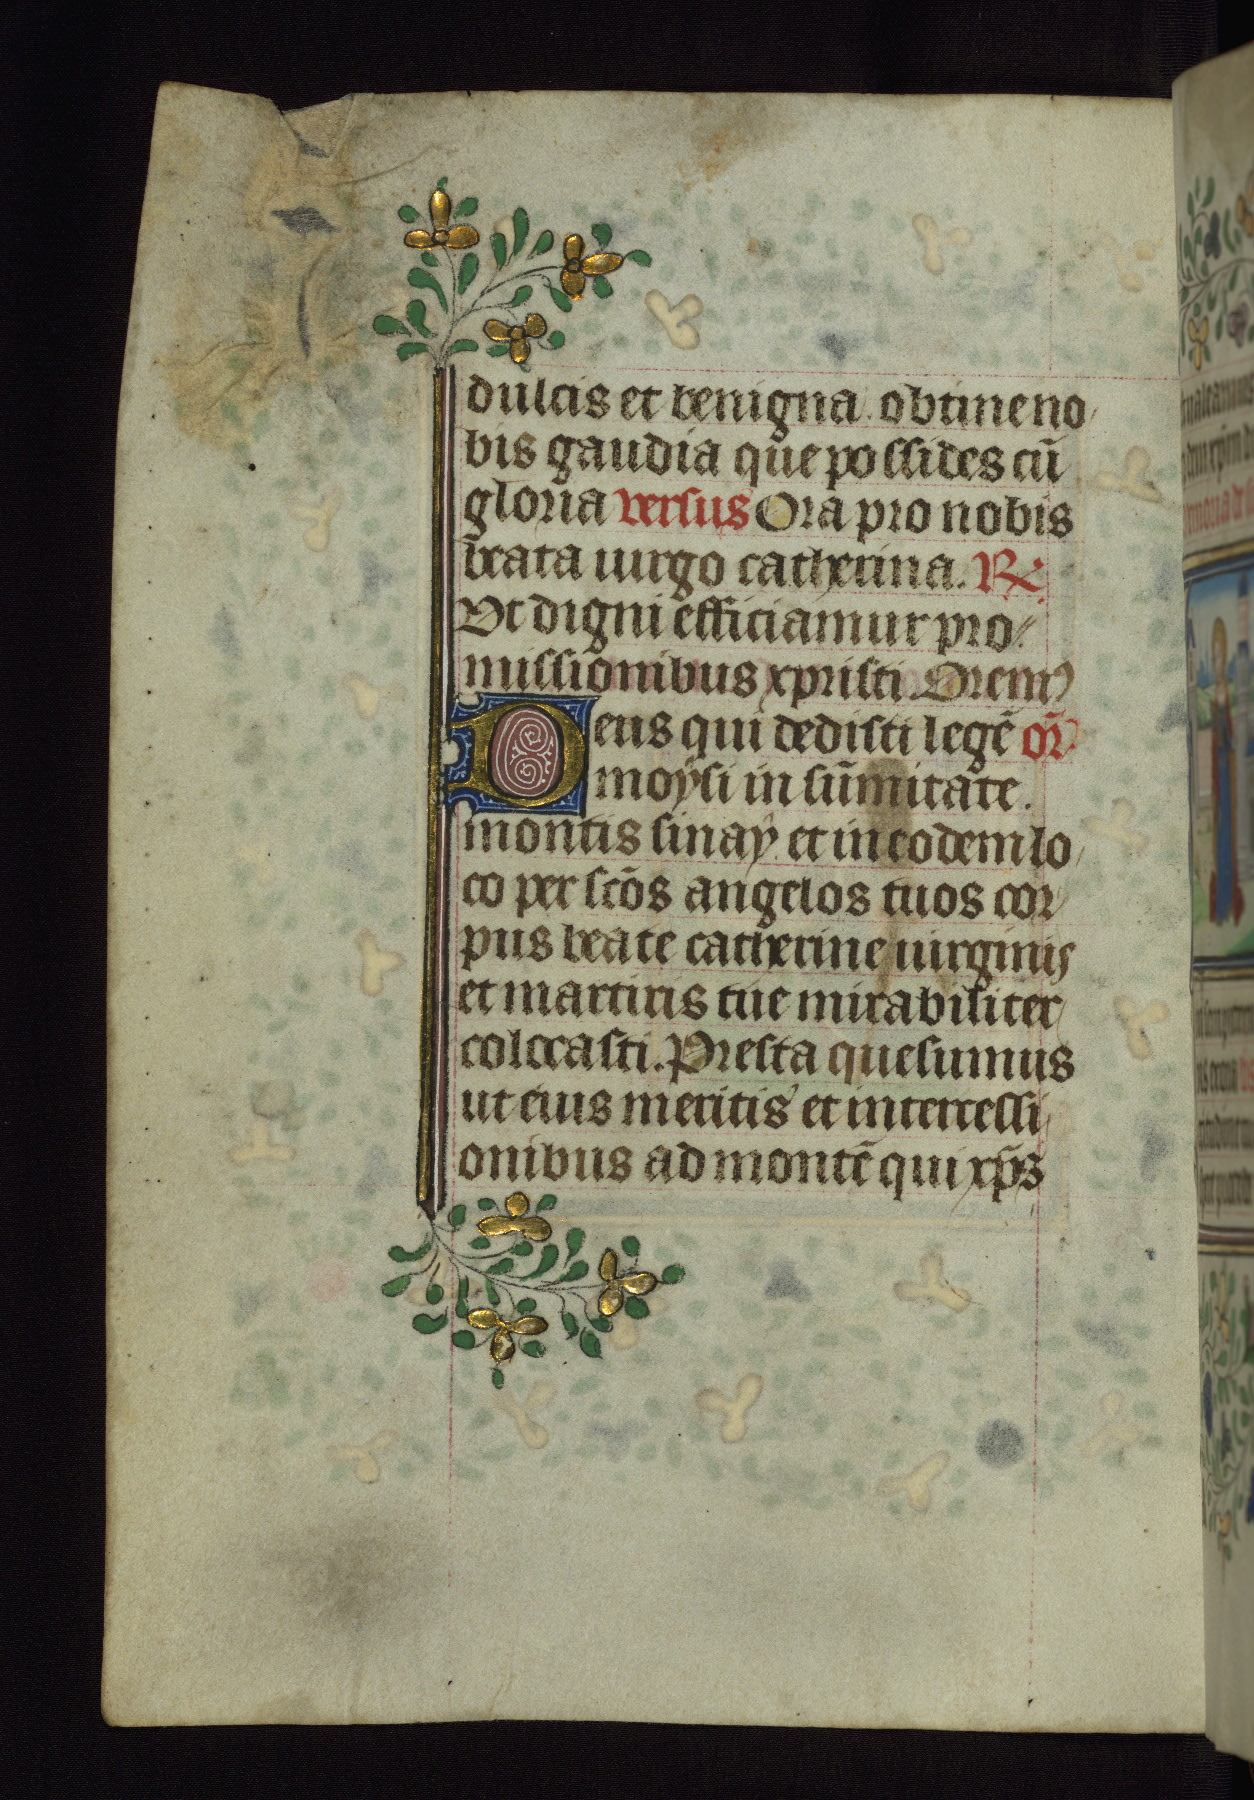 dulcis et benigna. obtine no
bis gaudia que possides cū
gloria versus Ora pro nobis
beata uirgo catherina. R̷
Vt digni efficiamur pro
missionibus xpristi Oremꝰ
Deus qui dedisti legē or̄
moÿsi in sūmitate.
montis sinaÿ et in eodem lo
co per scōs angelos tuos cor
pus beate catherine uirginis
et martiris tue mirabiliter
colocasti. Presta quesumus
ut eius meritis et intercessi
onibus ad montē qui xp̄s